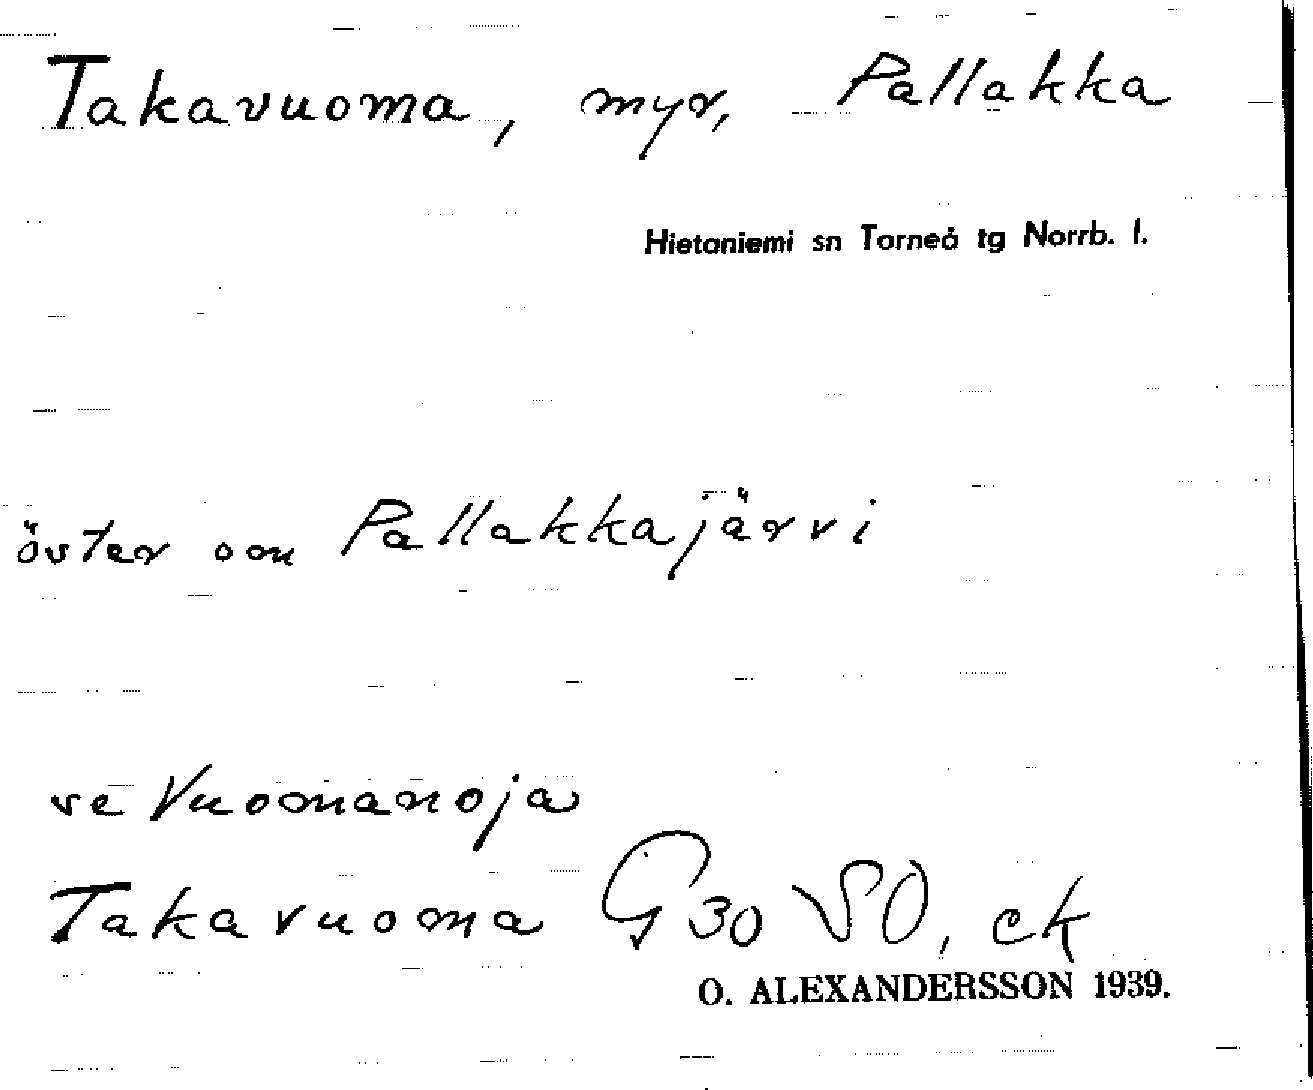 Takavuoma, myr, Pallakka
Hietaniemi sn Torneå tg Norrb. l.
öster om Pallakkajärvi
se Vuomanoja
Takavuoma G30 SO, ek
O. ALEXANDERSSON 1939.